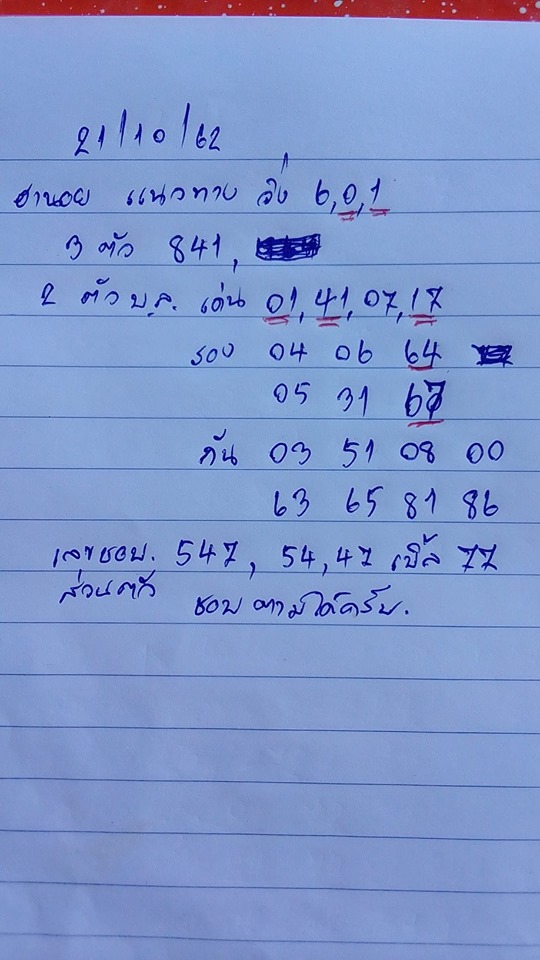 21/10/62
ฮานอย แนวทาง วิ่ง 6,0,1
3 ตัว 841,
2 ตัว บ.ล. เด่น 01,41,07,17
รอง 04 06 64
05 31 67
กัน 03 51 08 00
63 65 81 86
เลขชอบ. 547, 54,47 เบิ้ล 77
ส่วนตัว
ชอบตามได้ครับ.